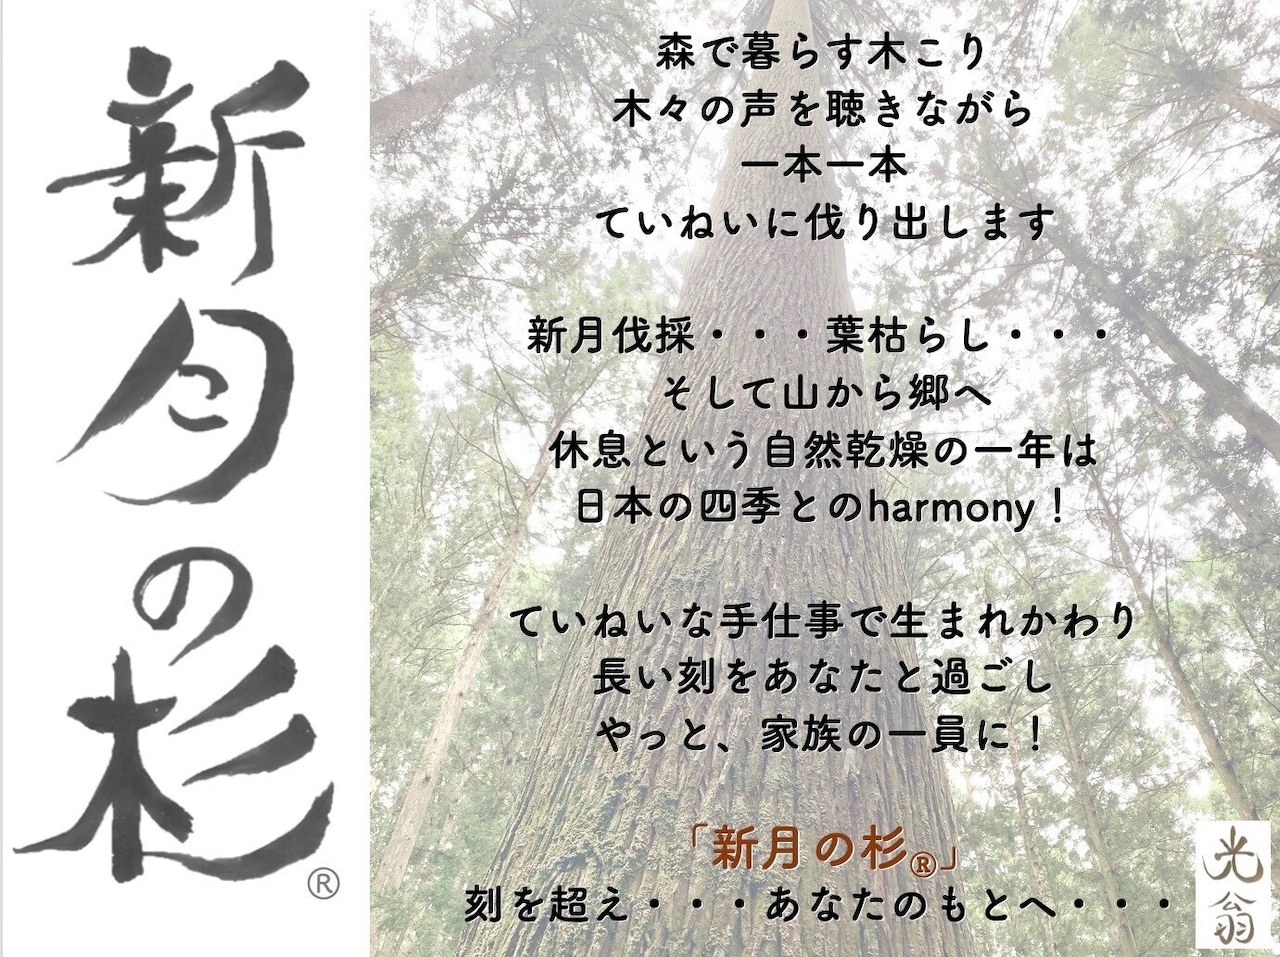 新月の杉
®
森で暮らす木こり
木々の声を聴きながら
一本一本
ていねいに伐り出します
新月伐採・・・葉枯らし・・・
そして山から郷へ
休息という自然乾燥の一年は
日本の四季とのharmony！
ていねいな手仕事で生まれかわり
長い刻をあなたと過ごし
やっと、家族の一員に！
「新月の杉®」
刻を超え・・・あなたのもとへ・・・
光翁